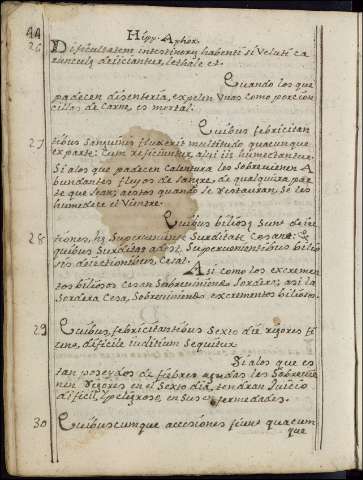 44 Hipp. Aphor.
26 Dificultatem intestinorũ habenti si veluti ca
runculę deiiciantur, lethale est.
Quando los que
padecen disenteria, expelen unas como porcion
cillas de carne, es mortal.
Quibus febricitan
27 tibus sanguinis fluxerit multitudo quacunque
ex parte: cum reficiuntur, alui iis humectantur.
Si a los que padecen Calentura les sobrevienen A
bundantes flujos de sangre, de qualquiera par
te que sean; a estos quando se restauran, se les
humedece el Vientre.
Quibus biliosę sunt deiec
28 tiones, hę superveniente surditate cesant: Et
quibus surditas adest, supervenientibus bilio
sis deiectionibus, cesat.
Asi como los excremen
tos biliosos cesan sobreviniendo sordera; asi la
sordera cesa, sobreviniendo excrementos biliosos.
29 Quibus febricitantibus sexto die rigores fi
unt, dificile iuditium sequitur.
Si a los que es
tan poseydos de fiebres agudas les sobrevie
nen rigores en el sexto dia, tendran juicio
dificil, y peligroso, en sus enfermedades.
30 Quibuscumque accesiones fiunt quacum
que